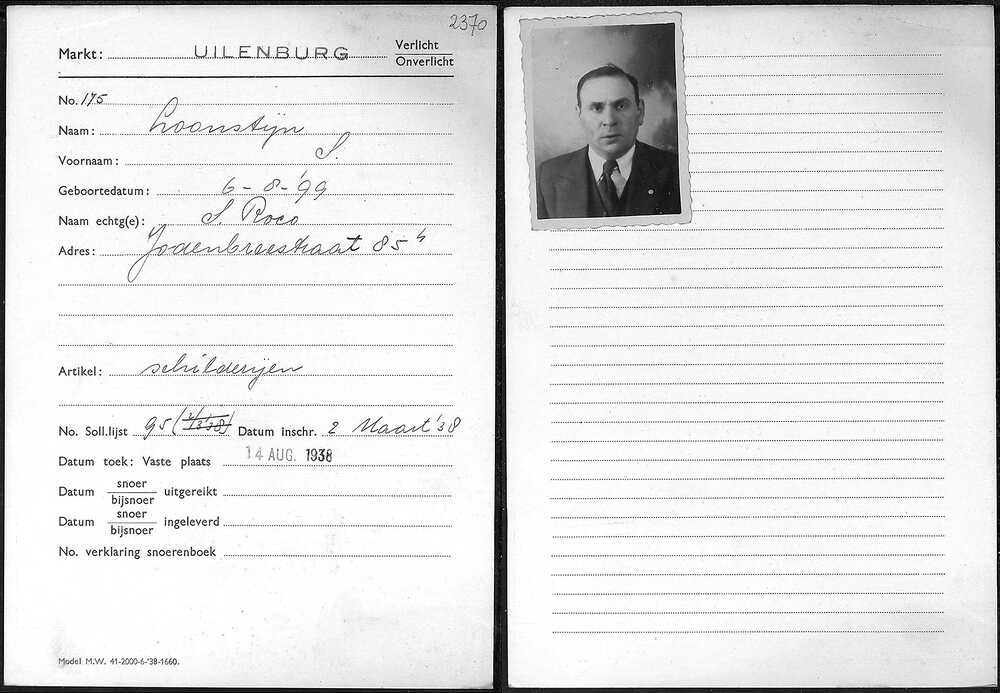 2370
Markt: UILENBURG Verlicht
Onverlicht
No. 175
Naam: Loonstijn
Voornaam: S.
Geboortedatum: 6-8-'99
Naam echtg(e): S. Roco
Adres: Jodenbreestraat 85 h
Artikel: schilderijen
No. Soll.lijst 95 (2/3'38) Datum inschr. 2 Maart '38
Datum toek: Vaste plaats 14 AUG. 1938
Datum snoer
bijsnoer uitgereikt
Datum snoer
bijsnoer ingeleverd
No. verklaring snoerenboek
Model M.W. 41-2000-6-'38-1660.